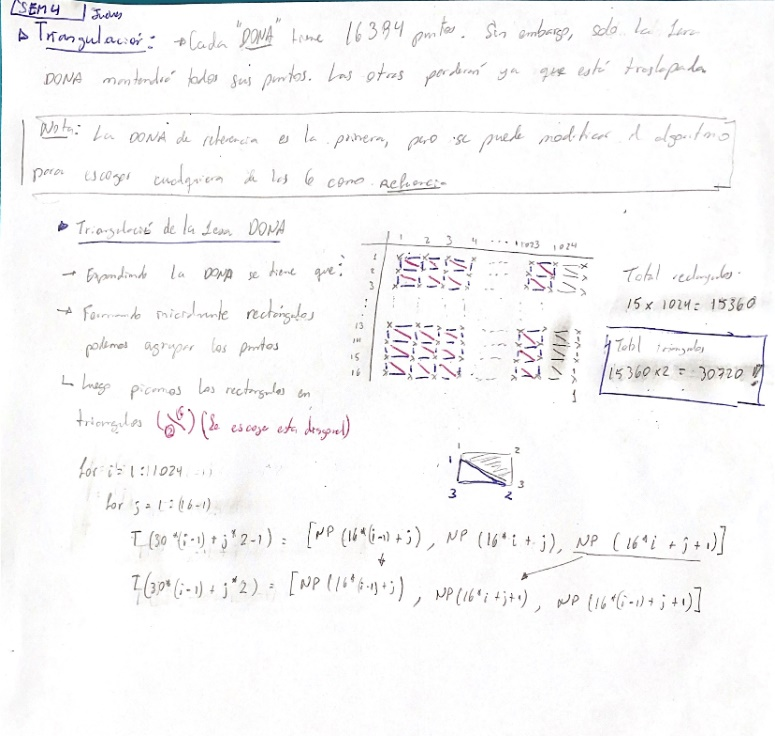 SEM 4 Jueves
Triangulación: → Cada "DONA" tiene 16394 puntos. Sin embargo, solo la 1era
DONA mantendrá todos sus puntos. Las otras perderán ya que está traslapada
Nota: La DONA de referencia es la primera, pero se puede modificar el algoritmo
para escoger cualquiera de las 6 como referencia
Triangulación de la 1era DONA
→ Expandiendo la DONA se tiene que:
→ Formando inicialmente rectángulos
podemos agrupar los puntos
↳ Luego picamos los rectangulos en
triangulos (Se escoge esta diagonal)
1 2 3 4 ... 1023 1024
1
2
3
13
14
15
16
1
Total rectangulos.
15 x 1024 = 15360
Total triangulos
15360 x 2 = 30720
for i = 1 : 1024
for j = 1 : (16-1)
1 2
1 3
3 2
T(30*(i-1) + j*2-1) = [NP(16*(i-1)+j), NP(16*i+j), NP(16*i+j+1)]
T(30*(i-1) + j*2) = [NP(16*(i-1)+j), NP(16*i+j+1), NP(16*(i-1)+j+1)]